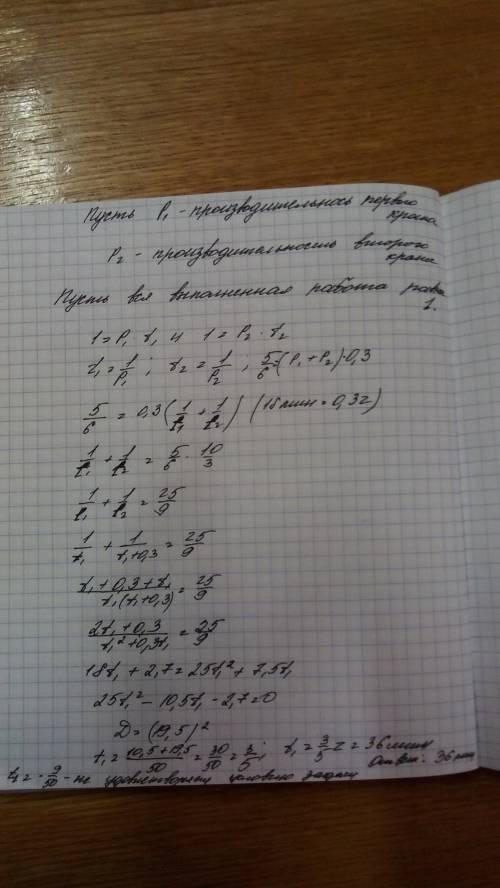 Пусть P₁ - производительнось первого крана
P₂ - производительность второго крана
Пусть вся выполненная работа равна 1.
1 = P₁ t₁ и 1 = P₂ · t₂
t₁ = 1/P₁ ; t₂ = 1/P₂ ; 5/6 = (P₁ + P₂) · 0,3
5/6 = 0,3 (1/t₁ + 1/t₂) (18 мин = 0,3 г)
1/t₁ + 1/t₂ = 5/6 · 10/3
1/t₁ + 1/t₂ = 25/9
1/t₁ + 1/(t₁ + 0,3) = 25/9
(t₁ + 0,3 + t₁)/(t₁(t₁ + 0,3)) = 25/9
(2t₁ + 0,3)/(t₁² + 0,3t₁) = 25/9
18t₁ + 2,7 = 25t₁² + 7,5t₁
25t₁² - 10,5t₁ - 2,7 = 0
D = (19,5)²
t₁ = (10,5 + 19,5)/50 = 30/50 = 3/5 ; t₁ = 3/5 г = 36 мин
t₁ = - 9/50 - не удовлетворяет условию задачи Ответ: 36 мин